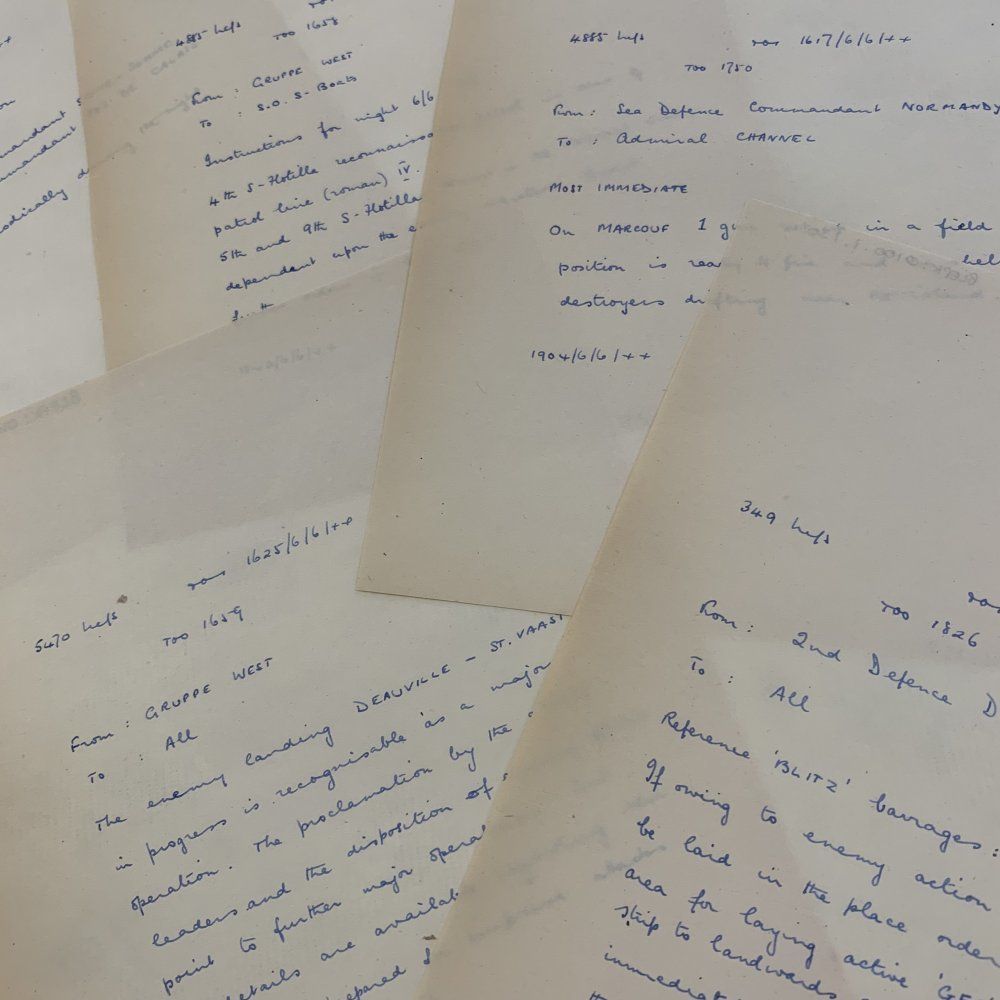 4885 kc/s
TOO 1658
From : GRUPPE WEST
To : S.O. S-Boats
Instructions for night 6/6
4th S-Flotilla reconnaiss
patrol line (roman) IV.
5th and 9th S-Flotilla
dependent upon the e
4885 kc/s 1617/6/6/++
TOO 1750
From: Sea Defence Commandant NORMANDY
To : Admiral CHANNEL
MOST IMMEDIATE
On MARCOUF 1 gu in a field
position is rea to fire and hel
destroyers drifting
1904/6/6/++
5470 kc/s 1625/6/6/++
TOO 1659
From : GRUPPE WEST
To : All
The enemy landing DEAUVILLE - ST. VAAST
in progress is recognisable as a major
operation. The proclamation by the
leaders and the disposition of
point to further major operat
details are availab
epared f
349 kc/s
TOO 1826
From : 2nd Defence D
To : All
Reference 'BLITZ' barrages :
If owing to enemy action
be laid in the place order
area for laying active
strip to landwards
immediat